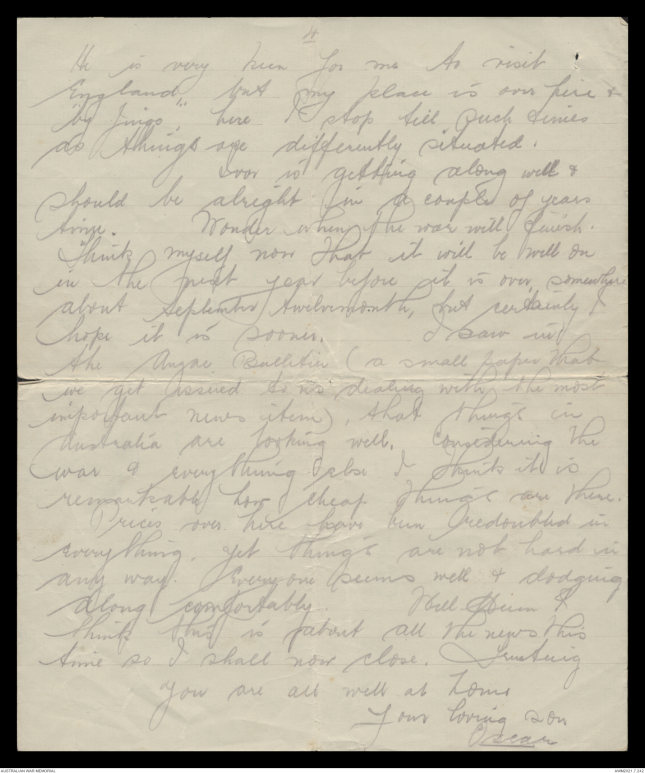 4
He is very keen for me to visit
England, but my place is over here &
"by Jingo" here I stop till such times
as things are differently situated.
Ivor is getting along well &
should be alright in a couple of years
time. Wonder when the war will finish.
Think myself now that it will be well on
in the next year before it is over, somewhere
about September twelvemonth, but certainly I
hope it is sooner. I saw in
the Anzac Bulletin (a small paper that
we get issued to us dealing with the most
important news item), that things in
Australia are looking well. Considering the
war & everything else I think it is
remarkable how cheap things are there.
Prices over here have been redoubled in
everything, yet things are not hard in
any way. Everyone seems well & dodging
along comfortably. Well I
think this is about all the news this
time so I shall now close. Trusting
you are all well at home
Your loving son
Oscar
AUSTRALIAN WAR MEMORIAL